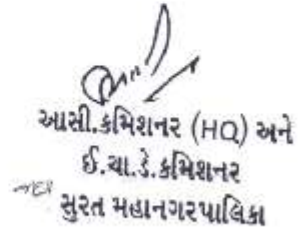 આસી.કમિશનર (HQ) અને
ઈ.ચા.ડે.કમિશનર
સુરત મહાનગરપાલિકા